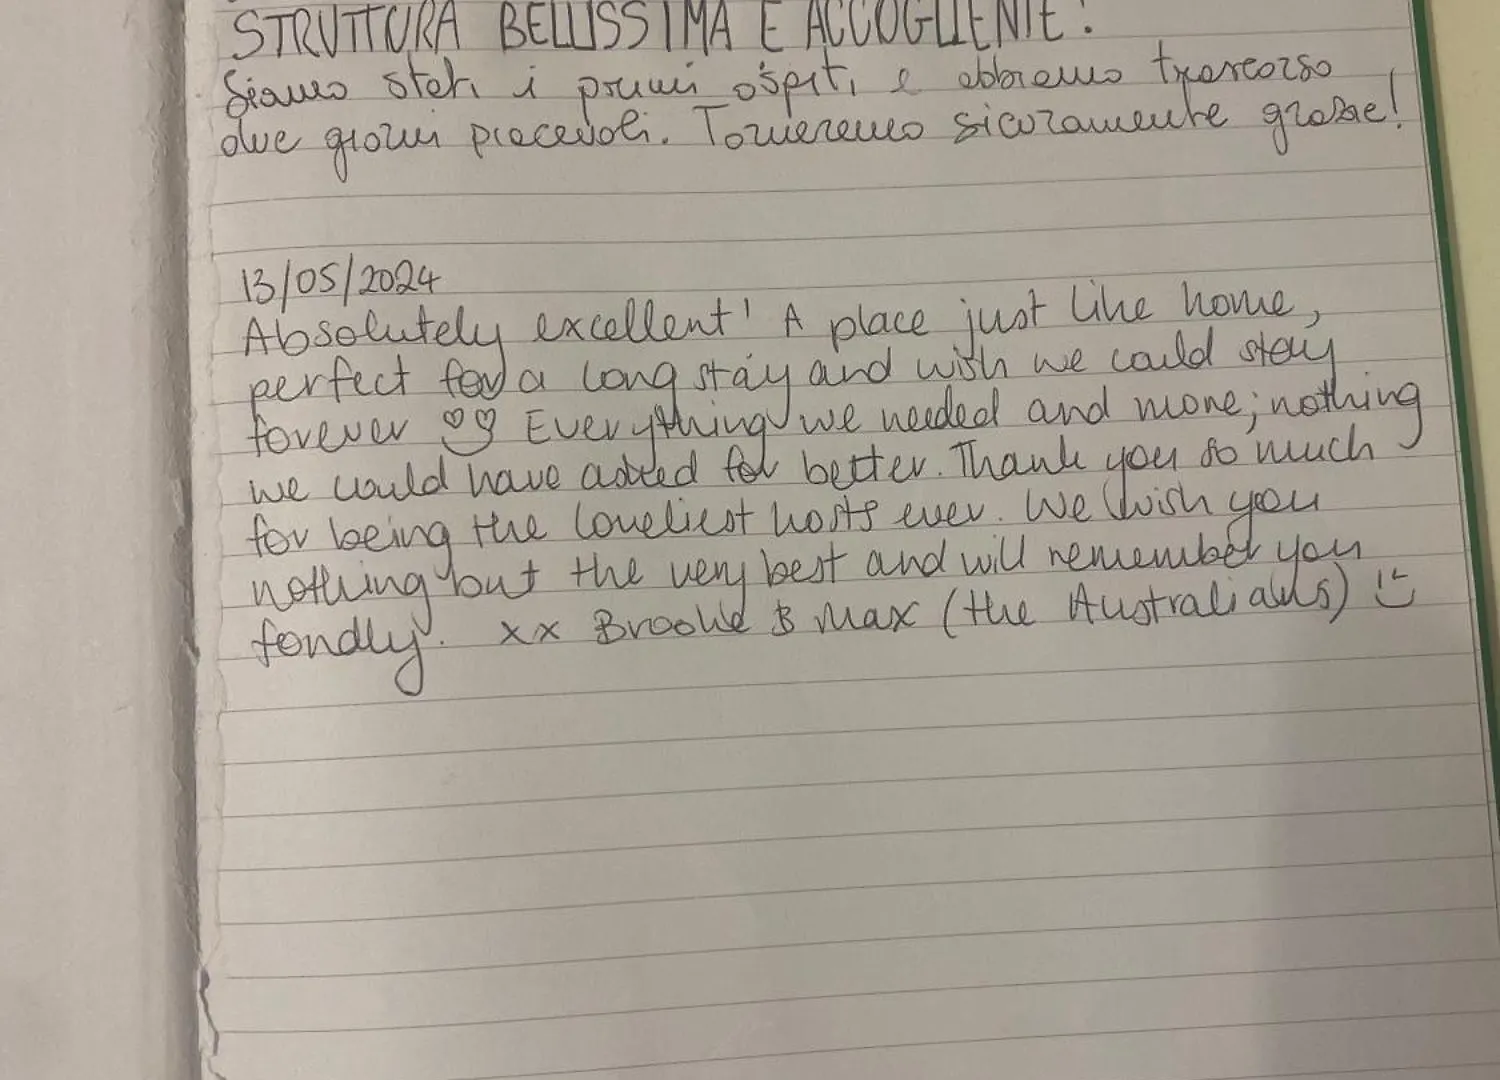 STRUTTURA BELLISSIMA E ACCOGLIENTE!
Siamo stati i primi ospiti e abbiamo trascorso
due giorni piacevoli. Torneremo sicuramente grazie!
13/05/2024
Absolutely excellent! A place just like home,
perfect for a long stay and wish we could stay
forever Everything we needed and more; nothing
we could have asked for better. Thank you so much
for being the loveliest hosts ever. We wish you
nothing but the very best and will remember you
fondly. xx Brooke & Max (the Australians)